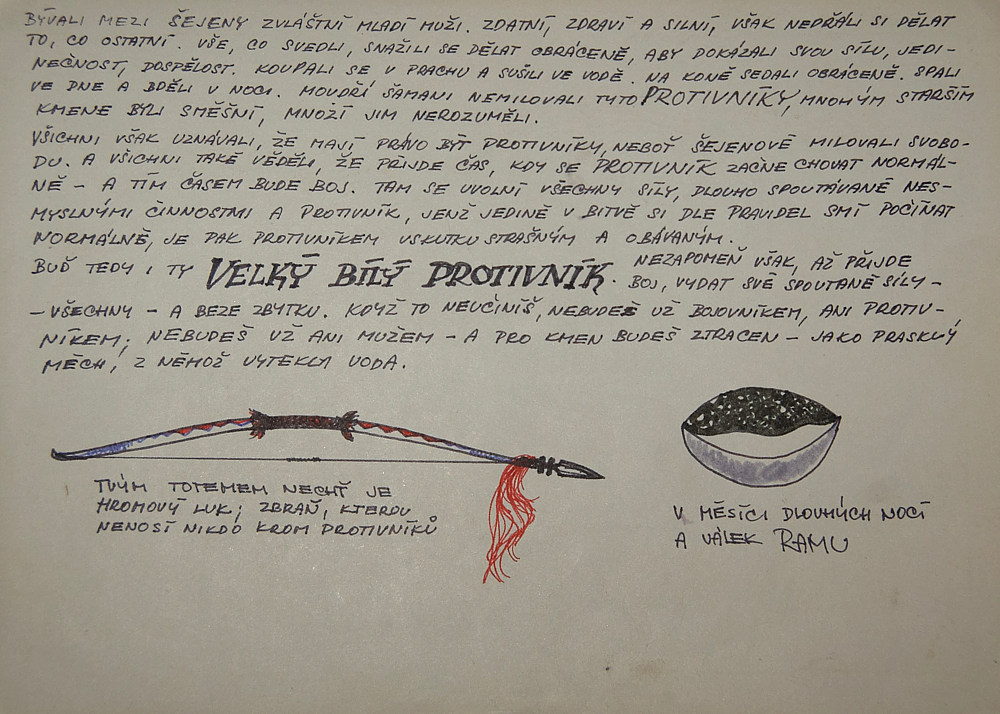 BÝVALI MEZI ŠEJENY ZVLÁŠTNÍ MLADÍ MUŽI. ZDATNÍ, ZDRAVÍ A SILNÍ, VŠAK NEDŘÁLI SI DĚLAT
TO, CO OSTATNÍ. VŠE, CO SVEDLI, SNAŽILI SE DĚLAT OBRÁCENĚ, ABY DOKÁZALI SVOU SÍLU, JEDI-
NEČNOST, DOSPĚLOST. KOUPALI SE V PRACHU A SUŠILI VE VODĚ. NA KONĚ SEDALI OBRÁCENĚ. SPALI
VE DNE A BDĚLI V NOCI. MOUDŘÍ ŠAMANI NEMILOVALI TYTO PROTIVNÍKY, MNOHÝM STARŠÍM
KMENE BYLI SMĚŠNÍ, MNOŽÍ JIM NEROZUMĚLI.
VŠICHNI VŠAK UZNÁVALI, ŽE MAJÍ PRÁVO BÝT PROTIVNÍKY, NEBOŤ ŠEJENOVÉ MILOVALI SVOBO-
DU. A VŠICHNI TAKÉ VĚDĚLI, ŽE PŘIJDE ČAS, KDY SE PROTIVNÍK ZAČNE CHOVAT NORMÁL-
NĚ - A TÍM ČASEM BUDE BOJ. TAM SE UVOLNÍ VŠECHNY SÍLY, DLOUHO SPOUTÁVANÉ NES-
MYSLNÝMI ČINNOSTMI A PROTIVNÍK, JENŽ JEDINĚ V BITVĚ SI DLE PRAVIDEL SMÍ POČÍNAT
NORMÁLNĚ, JE PAK PROTIVNÍKEM VSKUTKU STRAŠNÝM A OBÁVANÝM.
BUĎ TEDY I TY VELKÝ BÍLÝ PROTIVNÍK. NEZAPOMEŇ VŠAK, AŽ PŘIJDE
BOJ, VYDAT SVÉ SPOUTANÉ SÍLY -
- VŠECHNY - A BEZE ZBYTKU. KDYŽ TO NEUČINÍŠ, NEBUDEŠ UŽ BOJOVNÍKEM, ANI PROTIV-
NÍKEM; NEBUDEŠ UŽ ANI MUŽEM - A PRO KMEN BUDEŠ ZTRACEN - JAKO PRASKLÝ
MĚCH, Z NĚHOŽ VYTEKLA VODA.
TVÝM TOTEMEM NECHŤ JE
HROMOVÝ LUK; ZBRAŇ, KTEROU
NENOSÍ NIKDO KROM PROTIVNÍKŮ
V MĚSÍCI DLOUHÝCH NOCÍ
A VÁLEK RAMU